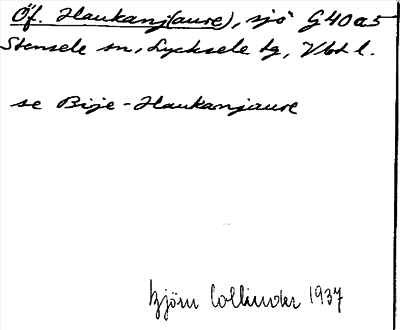 Öf. Haukanj(aure), sjö G40a5
Stensele sn, Lycksele lg, Vbtl.
se Bije-Haukanjaure
Björn Collinder 1937